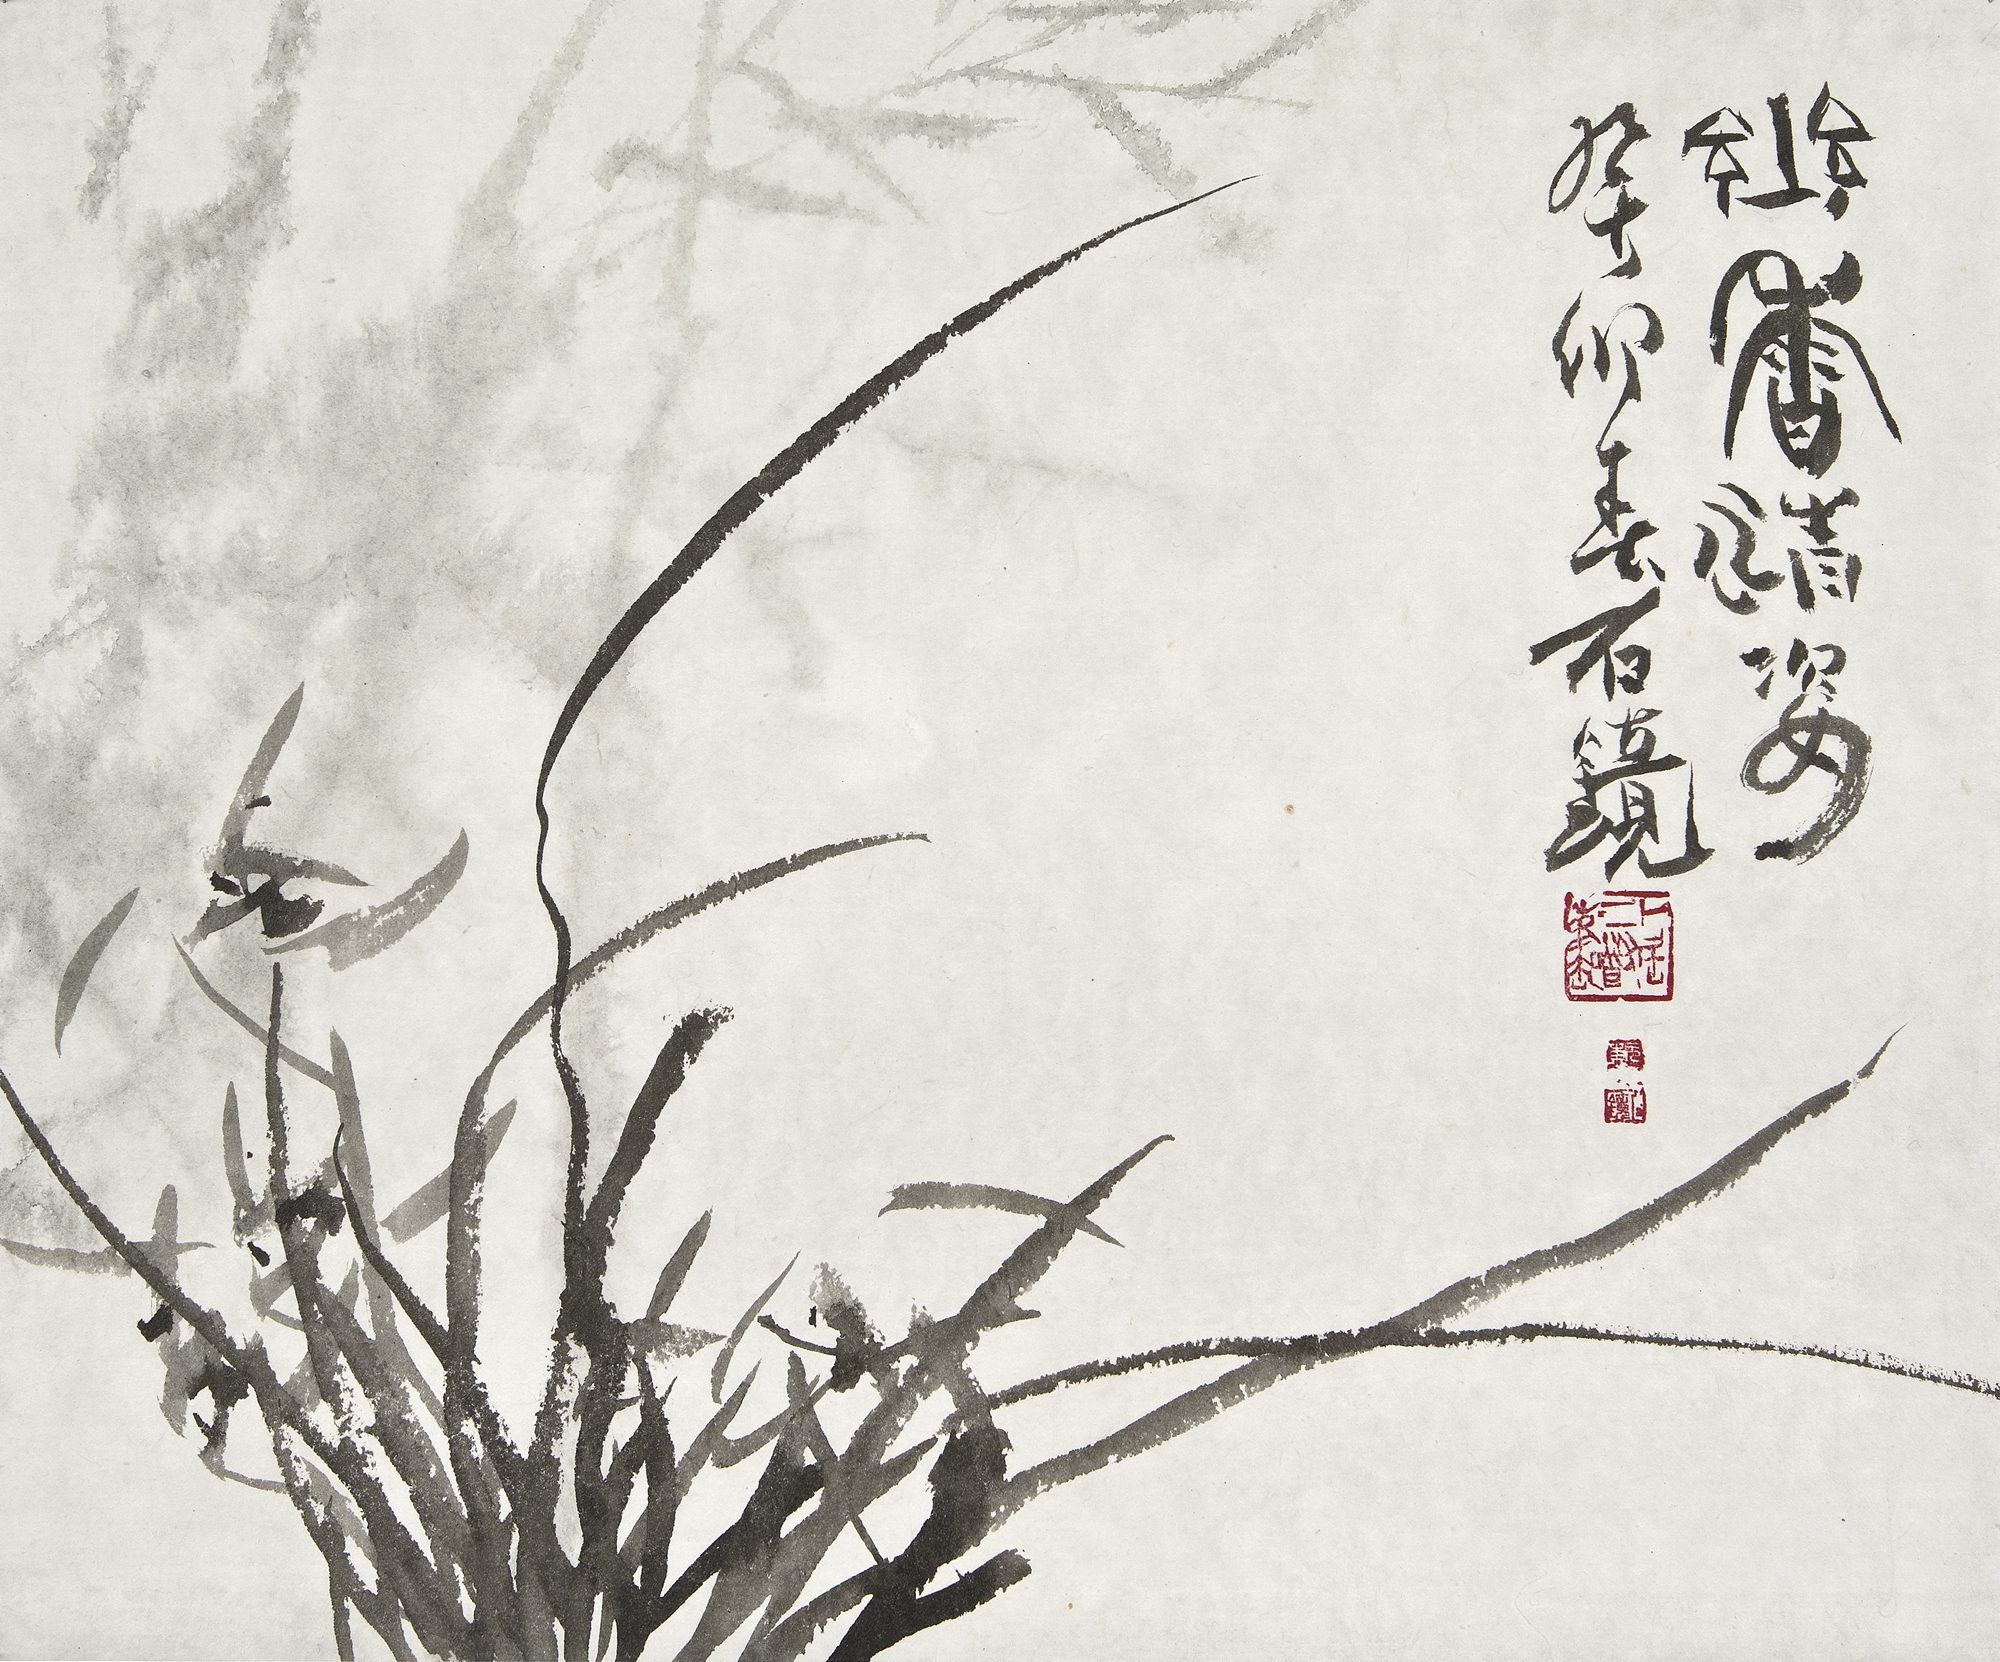 幽香清姿
癸卯春石鏡